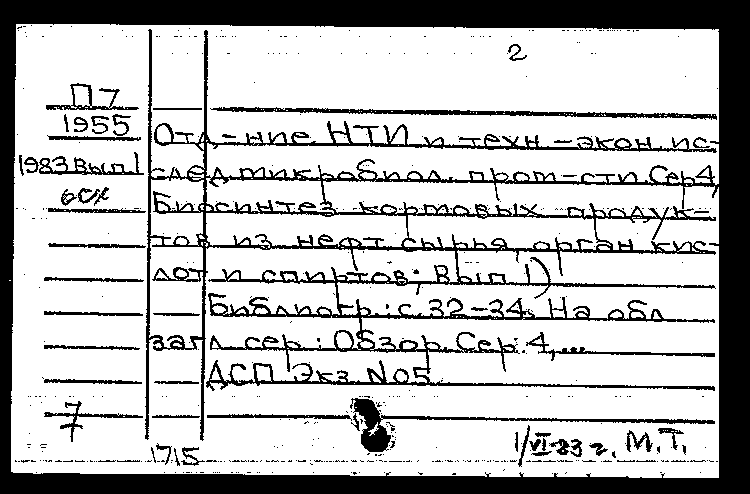 2
П7
1955
1983 вып1
бсх
Отд-ние НТИ и техн-экон. ис-
след. микробиол. пром-сти. Сер4,
Биосинтез кормовых продук-
тов из нефт сырья, орган кис-
лот и спиртов; Вып 1)
Библиогр.: с. 32-34. На обл
загл сер: Обзор. Сер. 4,...
ДСП Экз. №05
7
1715
1/VI-83 г. М.Т.